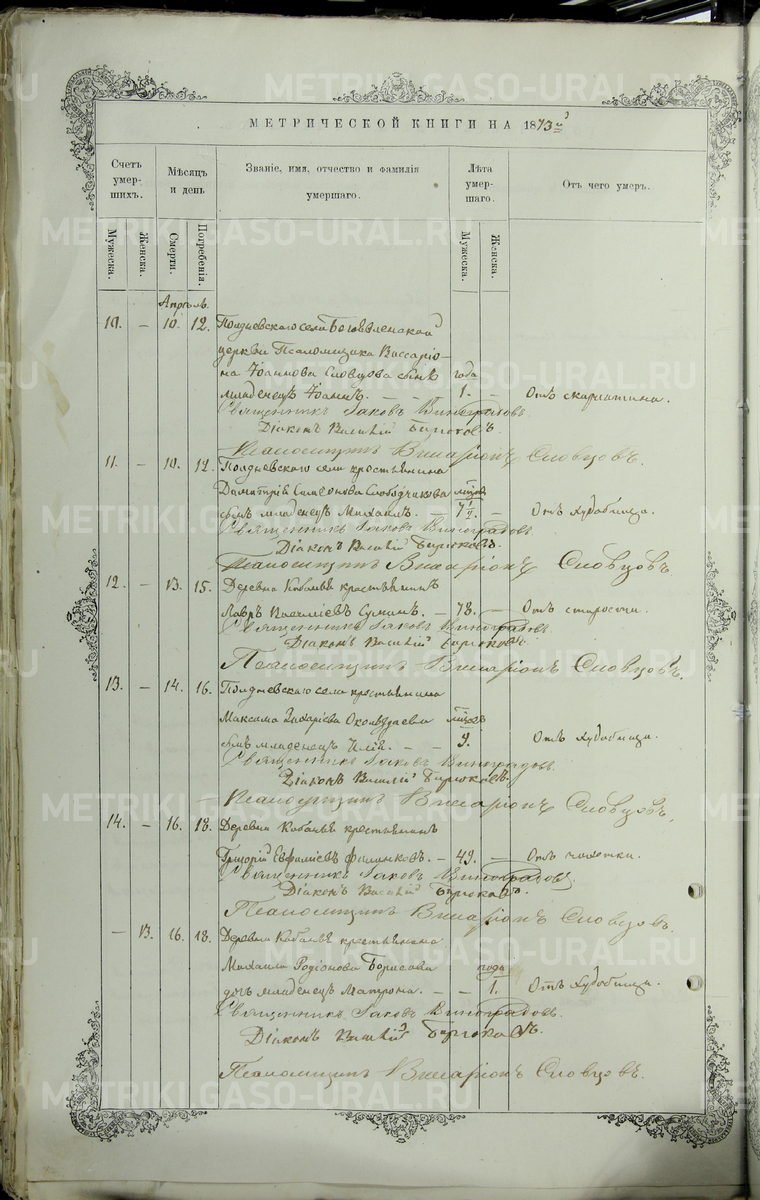 МЕТРИЧЕСКОЙ КНИГИ НА 1873й
Счетъ умер-шихъ. Мѣсяцъ и день Званіе, имя, отчество и фамилія умершаго. Лѣта умер-шаго. Отъ чего умеръ.
Мужеска. Женска. Смерти. Погребенія. Мужеска. Женска.
Апрѣль.
10. – 10. 12. Полдневскаго села Богоявленской
церкви Псаломщика Виссаріо-
на Іоаннова Словцова сынъ года
младенецъ Іоаннъ. – – 1. – Отъ скарлатина.
Священникъ Іаковъ Виноградовъ
Діаконъ Василій Бирюковъ
Псаломщикъ Висаріонъ Словцовъ.
11. – 10. 12. Полдневскаго села крестьянина
Димитрія Симеонова Слободчикова
сынъ младенецъ Михаилъ. – – Отъ худобища.
Священникъ Іаковъ Виноградовъ
Діаконъ Василій Бирюковъ
Псаломщикъ Висаріонъ Словцовъ
12. – 13. 15. Деревни Кабанья крестьянинъ
Лавръ Василіевъ Сунинъ. – 78. – Отъ старости.
Священникъ Іаковъ Виноградовъ.
Діаконъ Василій Бирюковъ.
Псаломщикъ Висаріонъ Словцовъ.
13. – 14. 16. Полдневскаго села крестьянина
Максима мѣсяц.
сынъ младенецъ Илія. – – 9. – Отъ худобища.
Священникъ Іаковъ Виноградовъ.
Діаконъ Василій Бирюковъ.
Псаломщикъ Висаріонъ Словцовъ.
14. – 16. 18. Деревни Кабанья крестьянинъ
Григорій Евфиміевъ Филинковъ. – 49. – Отъ чахотки.
Священникъ Іаковъ Виноградовъ
Діаконъ Василій Бирюковъ.
Псаломщикъ Висаріонъ Словцовъ.
– 13. 16. 18. Деревни Кабанья крестьянина
Михаила Родіонова Борисова годъ
дочь младенецъ Матрона. – – 1. Отъ худобища.
Священникъ Іаковъ Виноградовъ.
Діаконъ Василій Бирюковъ.
Псаломщикъ Висаріонъ Словцовъ.
METRIKI.GASO-URAL.RU